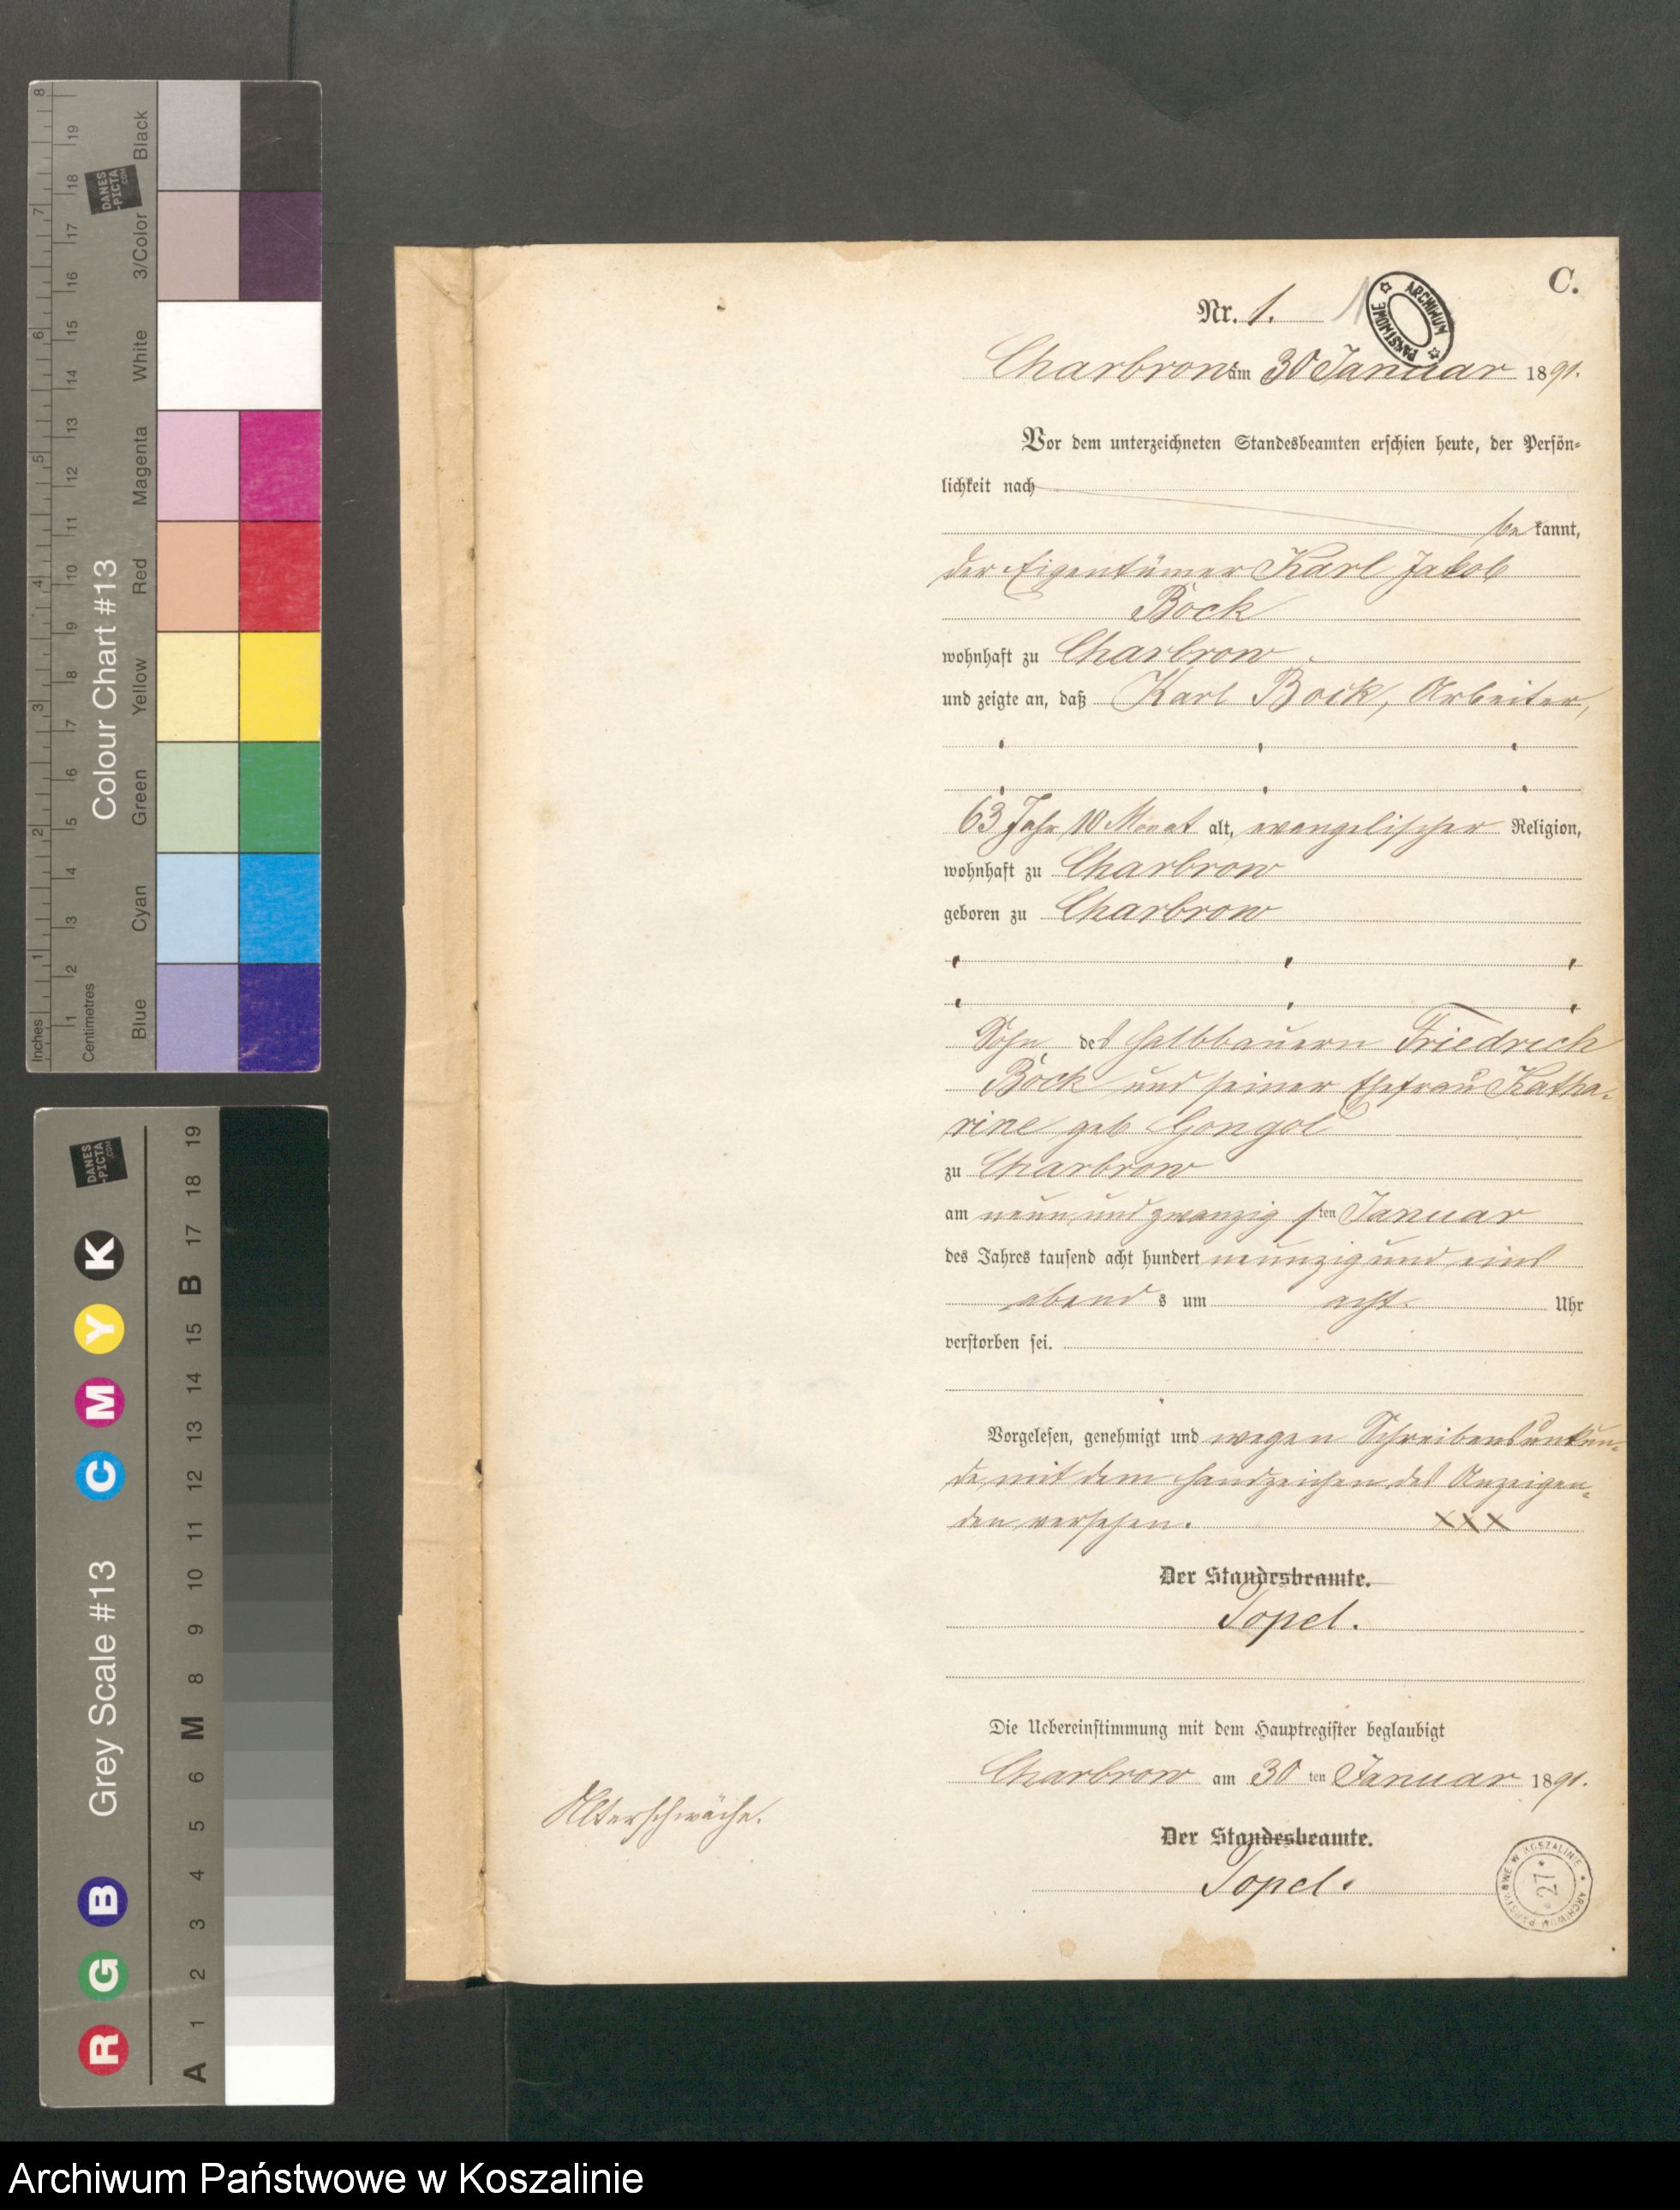 C.
Nr. 1. 1
ARCHIWUM PAŃSTWOWE
Charbrow am 30 Januar 1891.
Vor dem unterzeichneten Standesbeamten erschien heute, der Persön-
lichkeit nach
be kannt,
der Eigentümer Karl Jakob
Bock
wohnhaft zu Charbrow
und zeigte an, daß Karl Bock, Arbeiter,
63 Jahr 10 Monat alt, evangelischer Religion,
wohnhaft zu Charbrow
geboren zu Charbrow
Sohn des Halbbauern Friedrich
Bock und seiner Ehefrau Katha-
rine geb Gongol
zu Charbrow
am neun und zwanzig sten Januar
des Jahres tausend acht hundert neunzig und eins
abend s um acht Uhr
verstorben sei.
Vorgelesen, genehmigt und wegen Schreibensunkun-
de mit dem Handzeichen des Anzeigen-
den versehen. XXX
Der Standesbeamte.
Topel.
Die Uebereinstimmung mit dem Hauptregister beglaubigt
Charbrow am 30 ten Januar 1891.
Alterschwäche.
Der Standesbeamte.
Topel.
ARCHIWUM PAŃSTWOWE W KOSZALINIE
* 27 *
Colour Chart #13
Inches 1 2 3 4 5 6 7 8
Centimetres 1 2 3 4 5 6 7 8 9 10 11 12 13 14 15 16 17 18 19
Blue Cyan Green Yellow Red Magenta White 3/Color Black
DANES
-PICTA
.COM
Grey Scale #13
R G B C M Y K
A 1 2 3 4 5 6 M 8 9 10 11 12 13 14 15 B 17 18 19
DANES
-PICTA
.COM
Archiwum Państwowe w Koszalinie